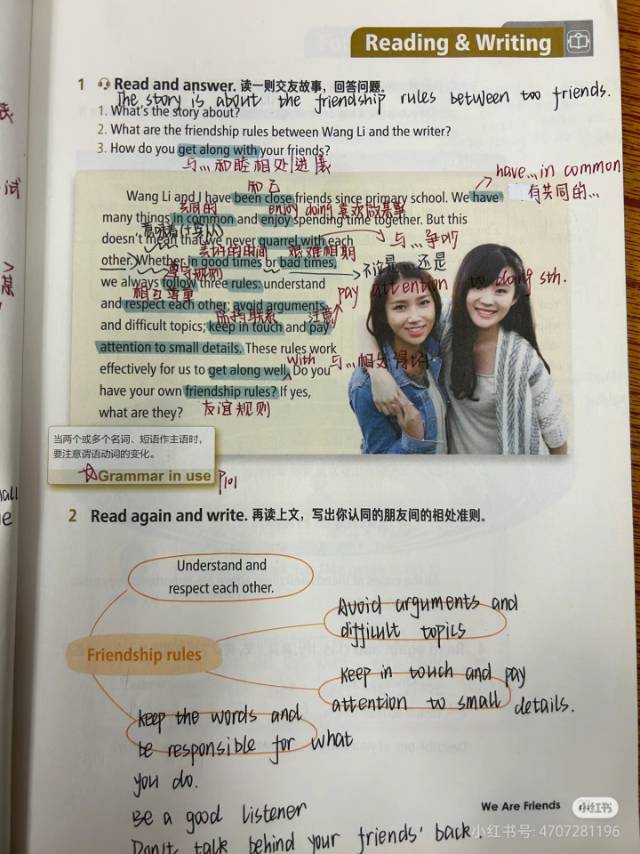 Reading & Writing
1 Read and answer. 读一则交友故事，回答问题。
The story is about the friendship rules between two friends.
1. What's the story about?
2. What are the friendship rules between Wang Li and the writer?
3. How do you get along with your friends?
与...和睦相处进展
have...in common
有共同的...
知己
Wang Li and I have been close friends since primary school. We have
共同的
enjoy doing 喜欢做某事
many things in common and enjoy spending time together. But this
意味着
doesn't mean that we never quarrel with each
与...争吵
美好的时间 艰难时期
other. Whether in good times or bad times,
不论是...还是
遵守规则
we always follow three rules: understand
pay attention to doing sth.
相互尊重
and respect each other; avoid arguments
保持联系 注意
and difficult topics; keep in touch and pay
attention to small details. These rules work
with 与...相处得好
effectively for us to get along well. Do you
have your own friendship rules? If yes,
what are they?
友谊规则
当两个或多个名词、短语作主语时，
要注意谓语动词的变化。
Grammar in use P101
2 Read again and write. 再读上文，写出你认同的朋友间的相处准则。
Understand and
respect each other.
Avoid arguments and
difficult topics
Friendship rules
Keep in touch and pay
attention to small details.
Keep the words and
be responsible for what
you do.
Be a good listener
Don't talk behind your friends' back.
We Are Friends
小红书
小红书号: 4707281196